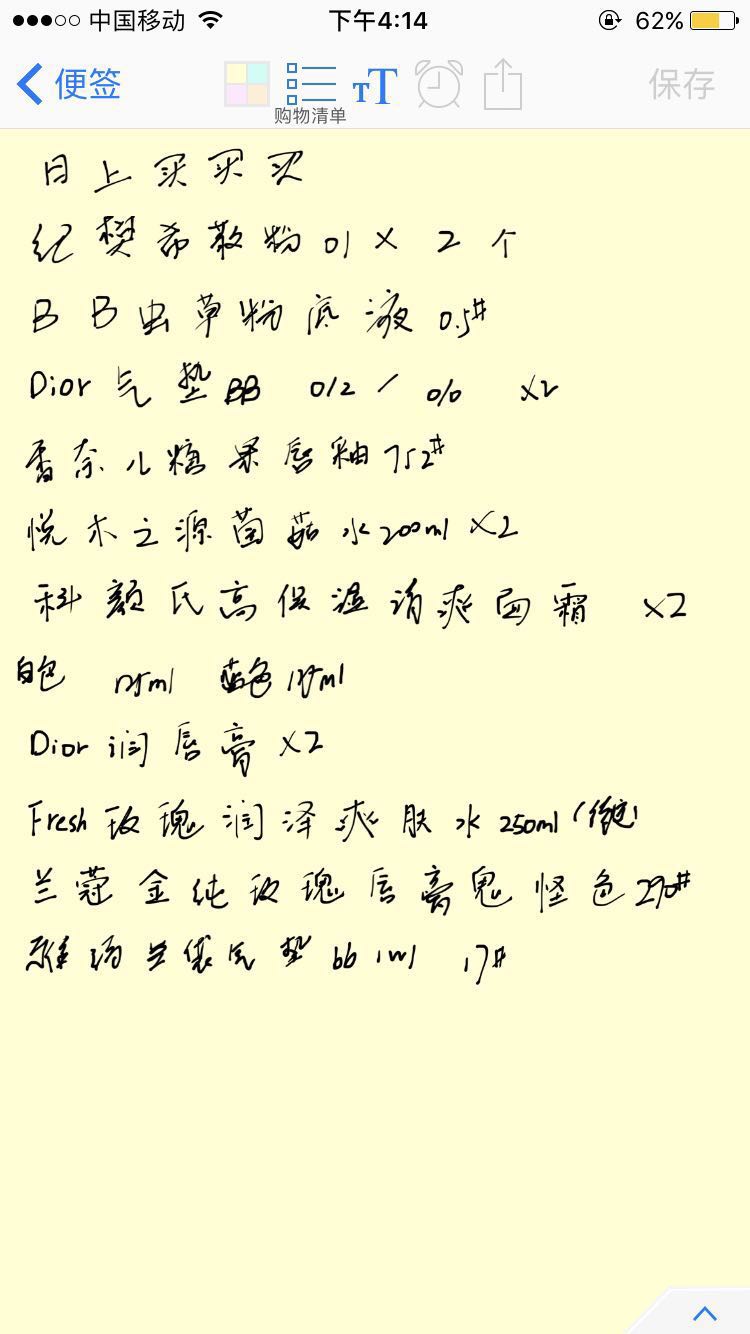 中国移动 下午4:14 62%
便签 保存
购物清单
日上买买买
纪樊希散粉 01 × 2 个
BB虫草粉底液 0.5#
Dior 气垫BB 012 / 010 ×2
香奈儿糖果唇釉 752#
悦木之源菌菇水 200ml ×2
科颜氏高保湿清爽面霜 ×2
白色 125ml 蓝色 125ml
Dior 润唇膏 ×2
Fresh 玫瑰润泽爽肤水 250ml
兰蔻金纯玫瑰唇膏鬼怪色 290#
雅诗兰黛气垫 bb 1w1 17#